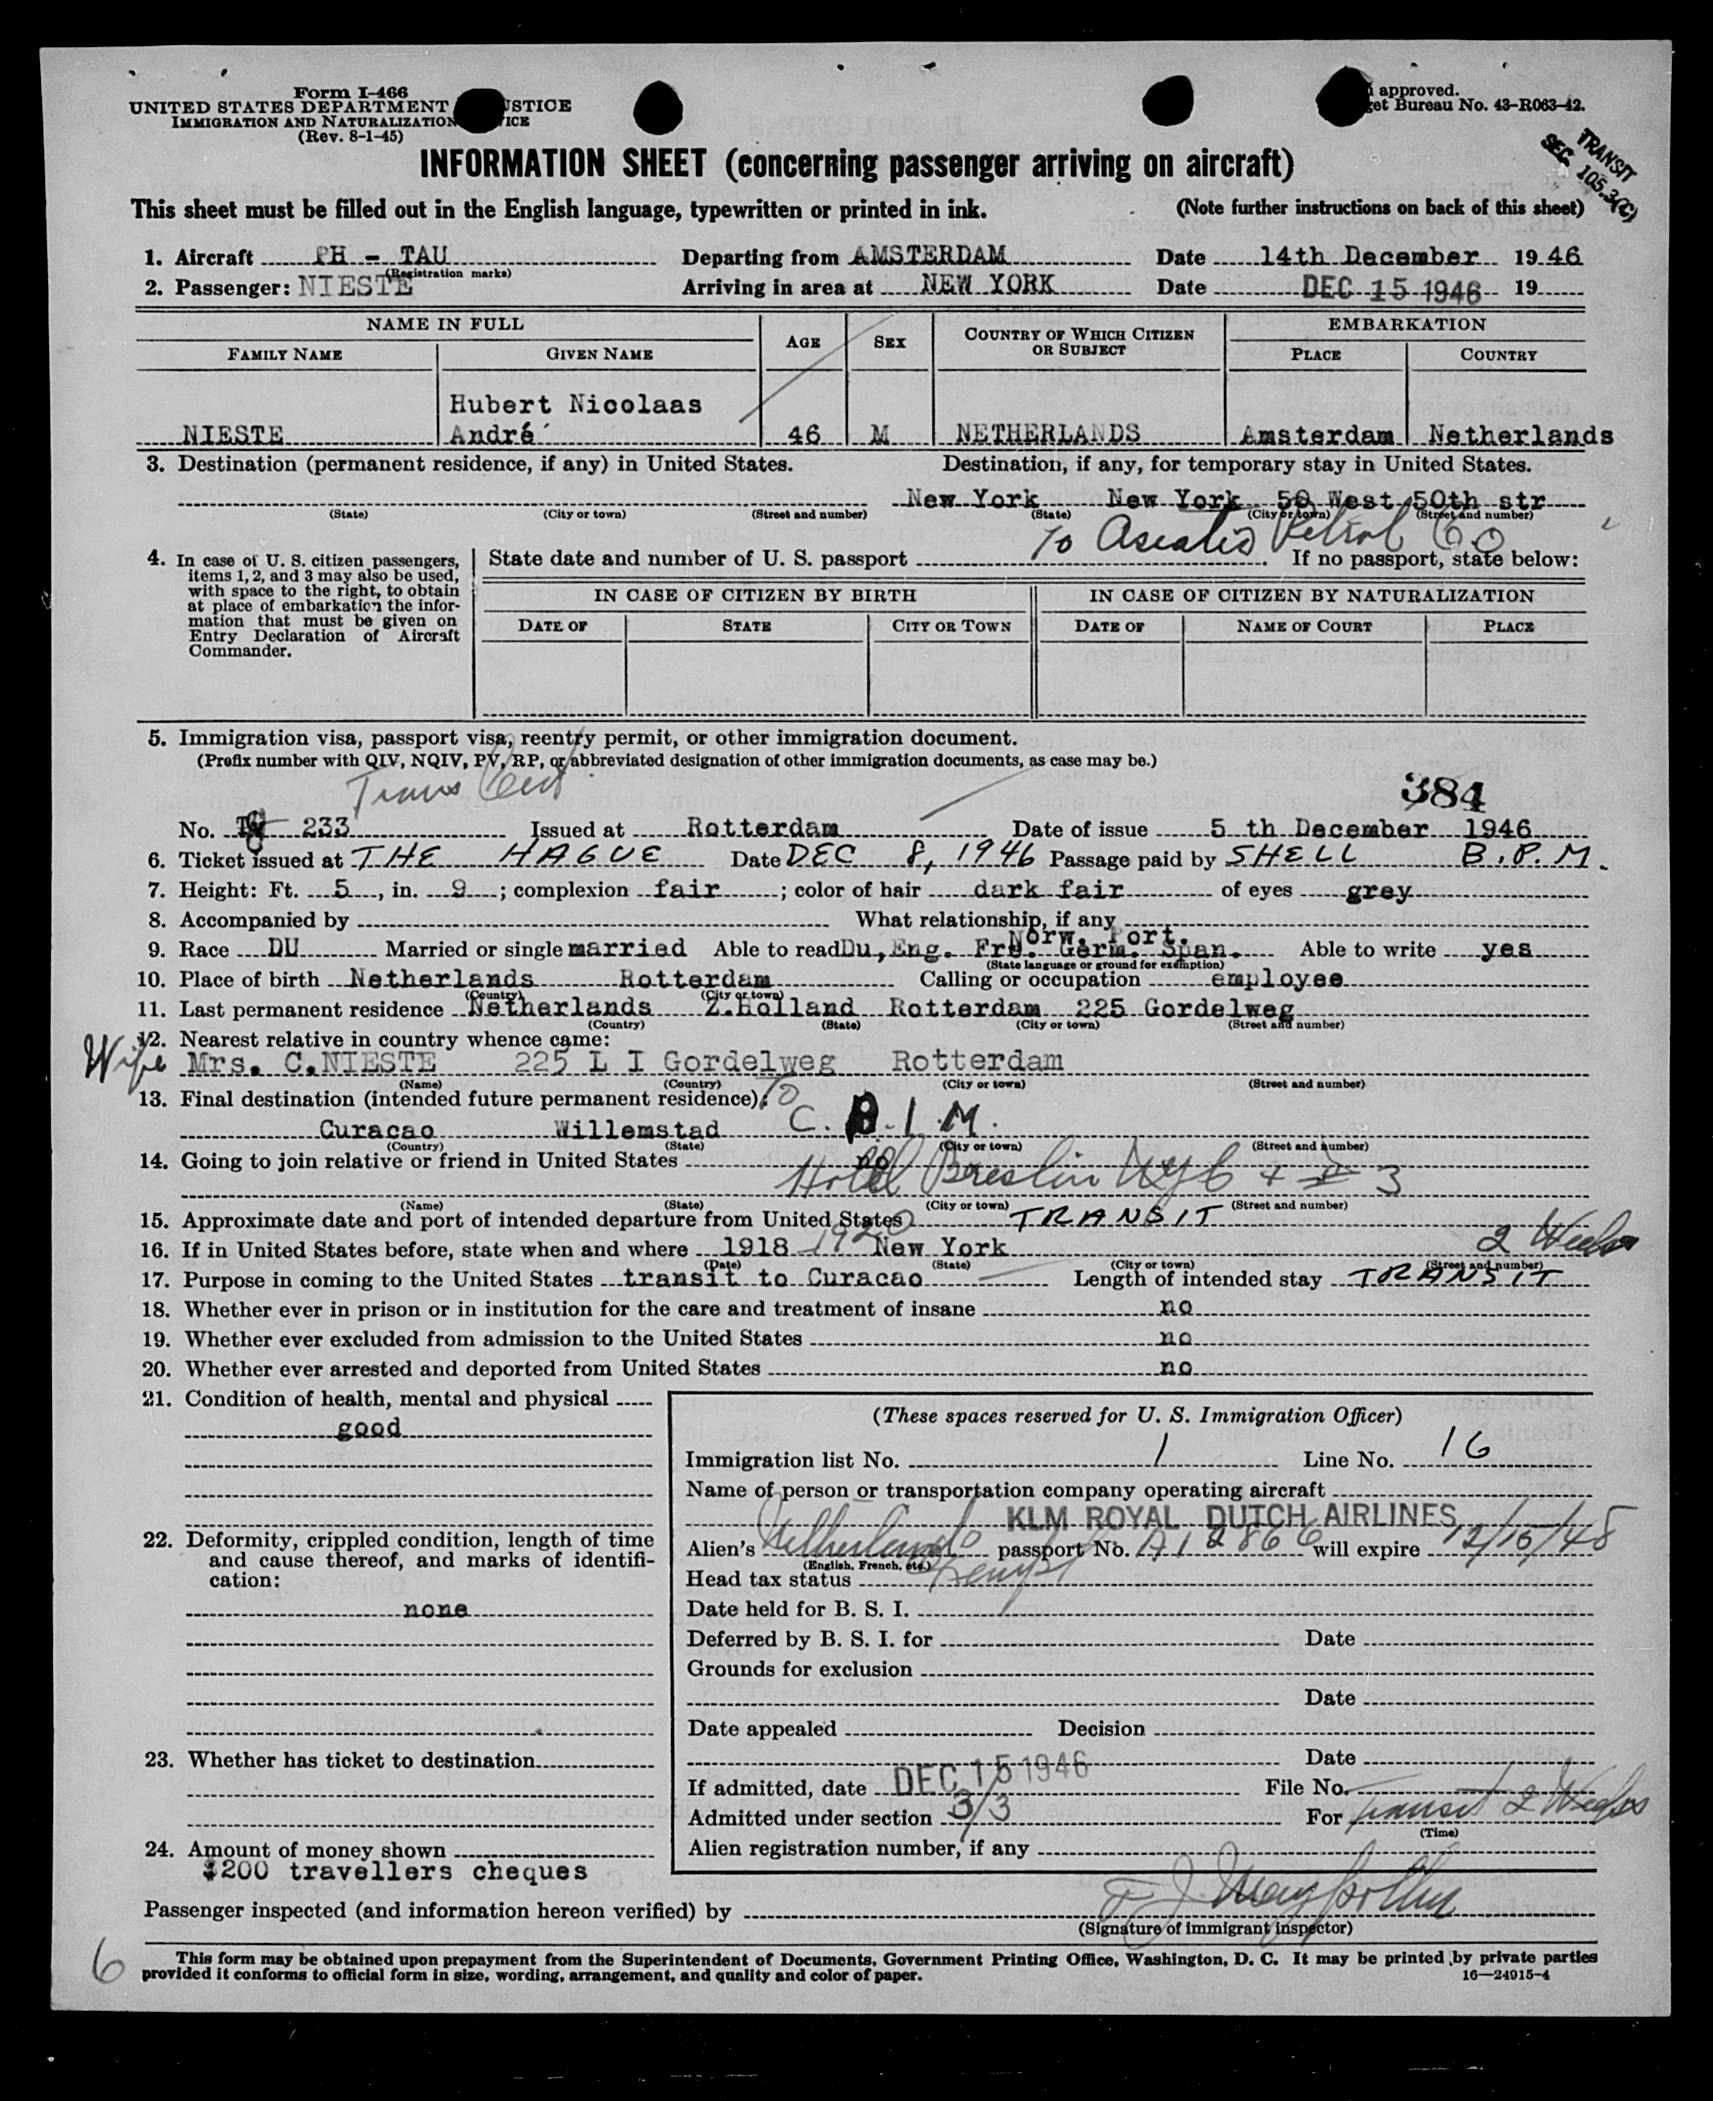 Form I-466
UNITED STATES DEPARTMENT JUSTICE
IMMIGRATION AND NATURALIZATION SERVICE
(Rev. 8-1-45)
approved.
Budget Bureau No. 43-R063-42.
TRANSIT
SEC. 105.3(C)
INFORMATION SHEET (concerning passenger arriving on aircraft)
This sheet must be filled out in the English language, typewritten or printed in ink. (Note further instructions on back of this sheet)
1. Aircraft PH - TAU Departing from AMSTERDAM Date 14th December 19 46
(Registration marks)
2. Passenger: NIESTE Arriving in area at NEW YORK Date DEC 15 1946 19
NAME IN FULL AGE SEX COUNTRY OF WHICH CITIZEN OR SUBJECT EMBARKATION
FAMILY NAME GIVEN NAME PLACE COUNTRY
Hubert Nicolaas
NIESTE André 46 M NETHERLANDS Amsterdam Netherlands
3. Destination (permanent residence, if any) in United States. Destination, if any, for temporary stay in United States.
New York New York 50 West 50th str
(State) (City or town) (Street and number) (State) (City or town) (Street and number)
To Asiatic Petrol Co
4. In case of U. S. citizen passengers, items 1, 2, and 3 may also be used, with space to the right, to obtain at place of embarkation the information that must be given on Entry Declaration of Aircraft Commander.
State date and number of U. S. passport If no passport, state below:
IN CASE OF CITIZEN BY BIRTH IN CASE OF CITIZEN BY NATURALIZATION
DATE OF STATE CITY OR TOWN DATE OF NAME OF COURT PLACE
5. Immigration visa, passport visa, reentry permit, or other immigration document.
(Prefix number with QIV, NQIV, PV, RP, or abbreviated designation of other immigration documents, as case may be.)
Trans Cert.
384
No. 233 Issued at Rotterdam Date of issue 5 th December 1946
6. Ticket issued at THE HAGUE Date DEC 8, 1946 Passage paid by SHELL B.P.M.
7. Height: Ft. 5, in. 9; complexion fair; color of hair dark fair of eyes grey
8. Accompanied by What relationship, if any
Norw. Port.
9. Race DU Married or single married Able to read Du, Eng. Fre. Germ. Span. Able to write yes
(State language or ground for exemption)
10. Place of birth Netherlands Rotterdam Calling or occupation employee
(Country) (City or town)
11. Last permanent residence Netherlands Z.Holland Rotterdam 225 Gordelweg
(Country) (State) (City or town) (Street and number)
12. Nearest relative in country whence came:
Wife Mrs. C.NIESTE 225 L I Gordelweg Rotterdam
(Name) (Country) (City or town) (Street and number)
13. Final destination (intended future permanent residence): To
Curacao Willemstad C. P. I. M.
(Country) (State) (City or town) (Street and number)
14. Going to join relative or friend in United States no
Hotel Breslin NYC + 3
(Name) (State) (City or town) (Street and number)
15. Approximate date and port of intended departure from United States TRANSIT
16. If in United States before, state when and where 1918 1920 New York 2 Weeks
(Date) (State) (City or town) (Street and number)
17. Purpose in coming to the United States transit to Curacao Length of intended stay TRANSIT
18. Whether ever in prison or in institution for the care and treatment of insane no
19. Whether ever excluded from admission to the United States no
20. Whether ever arrested and deported from United States no
21. Condition of health, mental and physical
good
22. Deformity, crippled condition, length of time and cause thereof, and marks of identification:
none
23. Whether has ticket to destination
24. Amount of money shown
$200 travellers cheques
(These spaces reserved for U. S. Immigration Officer)
Immigration list No. 1 Line No. 16
Name of person or transportation company operating aircraft
KLM ROYAL DUTCH AIRLINES
Alien's Netherlands passport No. A12866 will expire 12/15/48
(English, French, etc.)
Head tax status Exempt
Date held for B. S. I.
Deferred by B. S. I. for Date
Grounds for exclusion
Date
Date appealed Decision
Date
If admitted, date DEC 15 1946 File No.
Admitted under section 3/3 For Transit 2 Weeks
(Time)
Alien registration number, if any
Passenger inspected (and information hereon verified) by
(Signature of immigrant inspector)
6
This form may be obtained upon prepayment from the Superintendent of Documents, Government Printing Office, Washington, D. C. It may be printed by private parties
provided it conforms to official form in size, wording, arrangement, and quality and color of paper. 16—24915-4